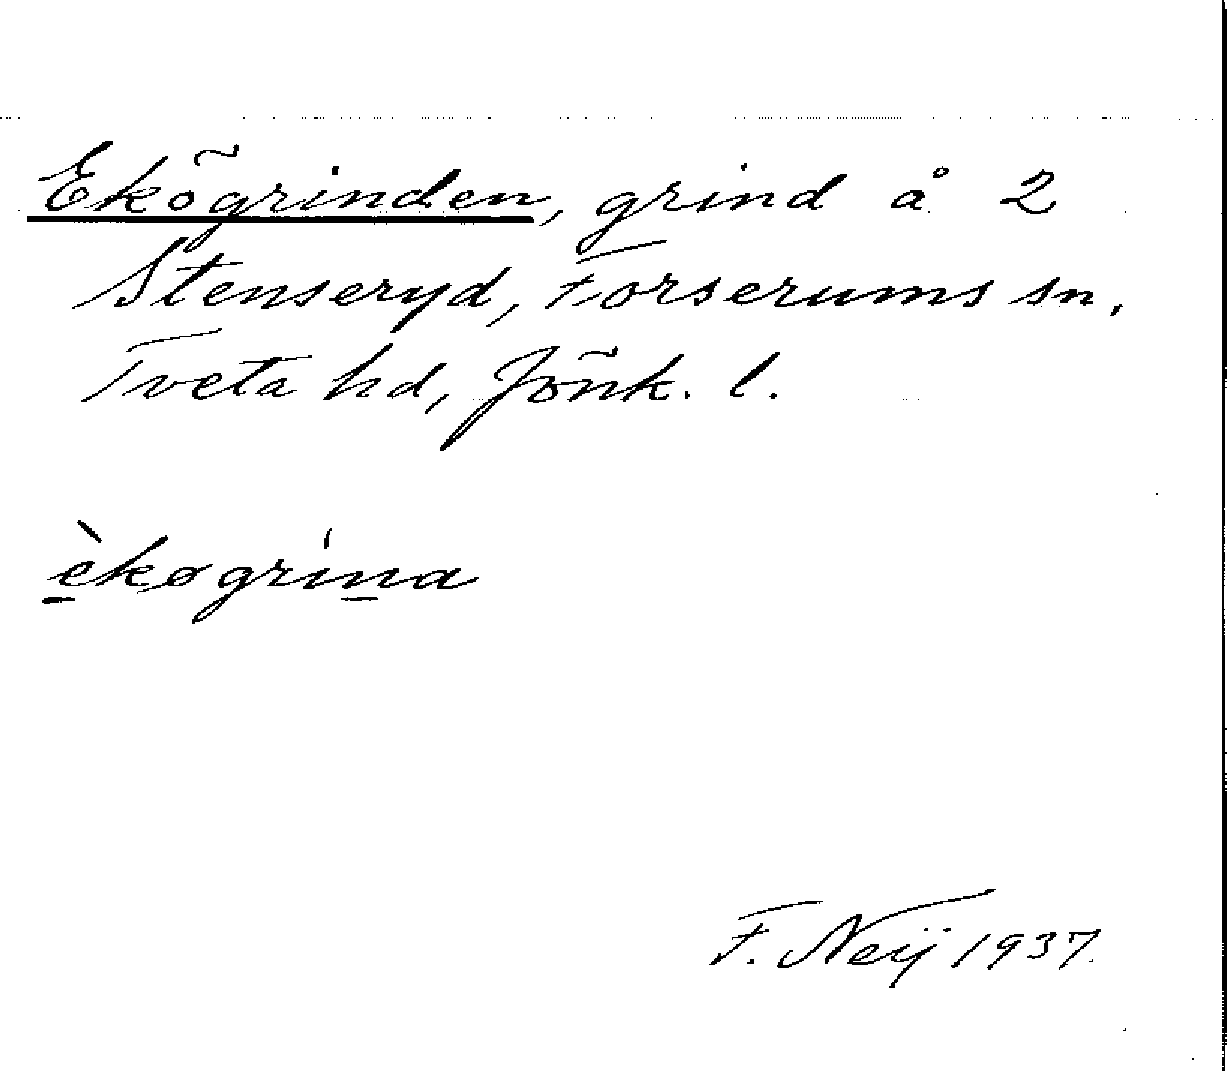 Ekögrinden, grind å 2
Stenseryd, Forserums sn,
Tveta hd, Jönk. l.
èkøgrina
F. Neij 1937.